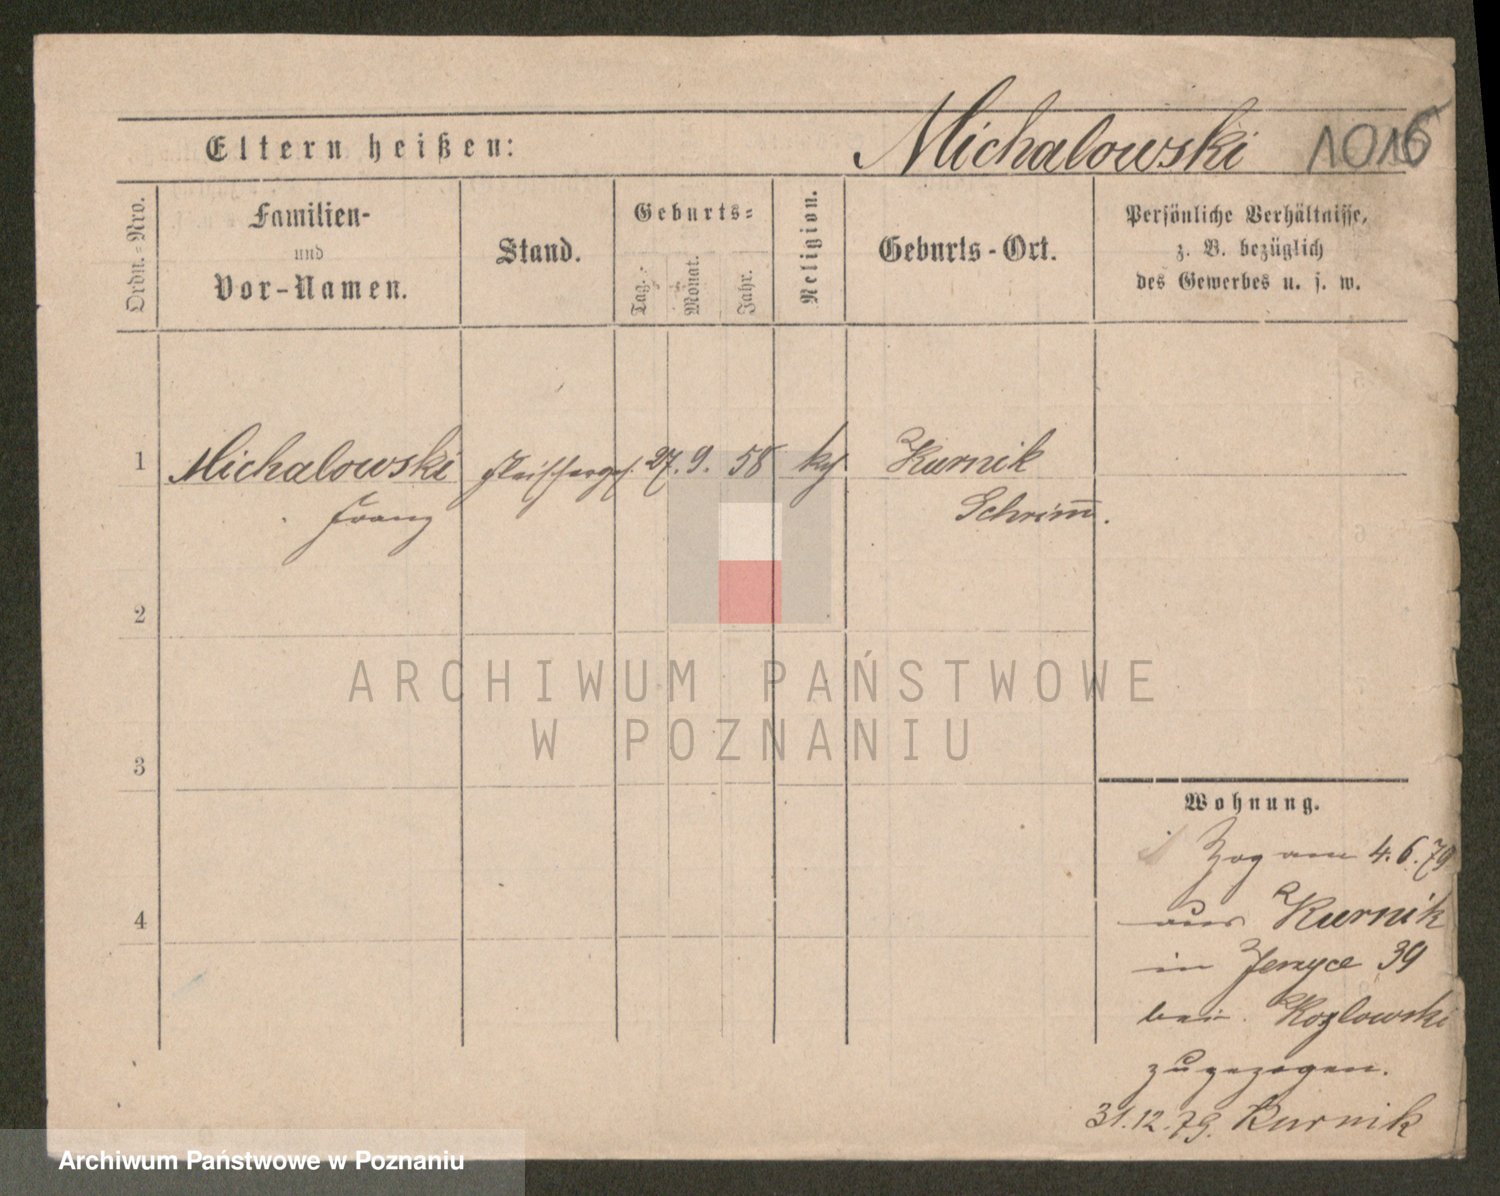 Michalowski 1016
Eltern heißen:
Ordn.-Nro.
Familien-
und
Vor-Namen.
Stand.
Geburts-
Tag.
Monat.
Jahr.
Religion.
Geburts-Ort.
Persönliche Verhältnisse,
z. B. bezüglich
des Gewerbes u. s. w.
1 Michalowski Fleischerges. 27. 9. 58 kth. Kurnik
Franz Schrim̅.
2
ARCHIWUM PAŃSTWOWE
W POZNANIU
3
Wohnung.
Zog am 4.6.79
4
aus Kurnik
in Jerzyce 39
bei Kozlowski
zugezogen.
31.12.79. Kurnik
Archiwum Państwowe w Poznaniu